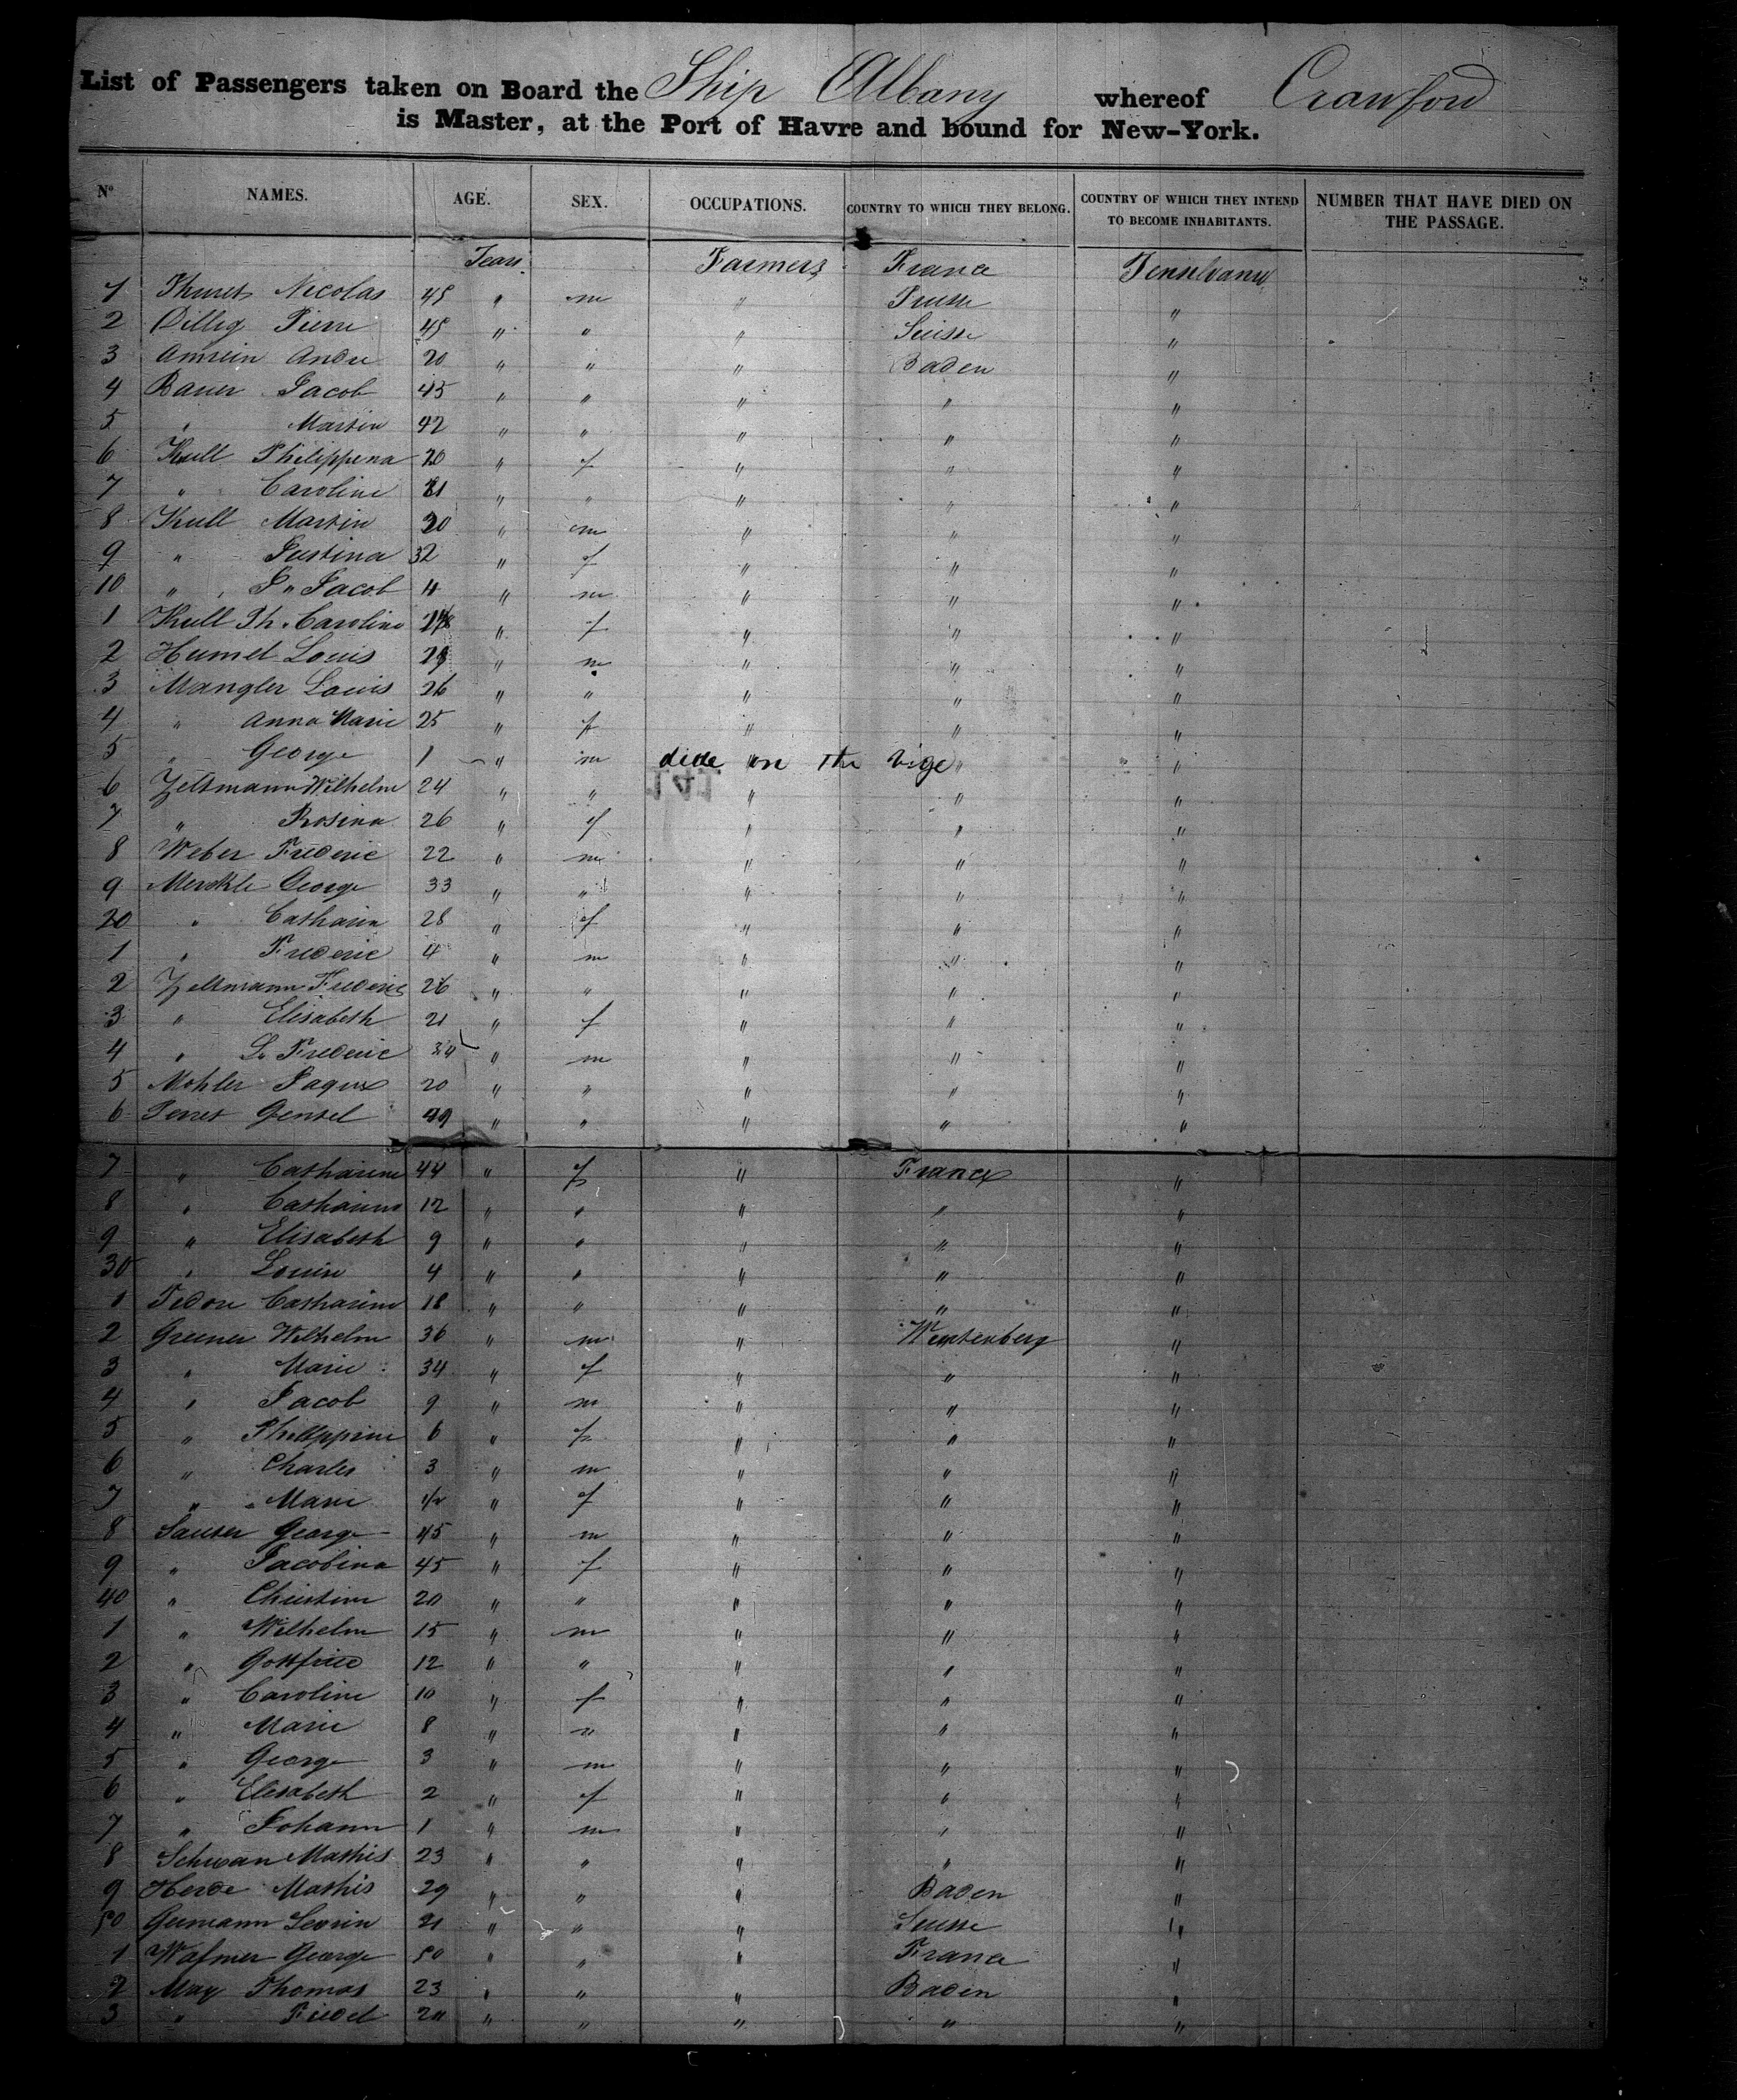 List of Passengers taken on Board the Ship Albany whereof Crawford
is Master, at the Port of Havre and bound for New-York.
Nº NAMES. AGE. SEX. OCCUPATIONS. COUNTRY TO WHICH THEY BELONG. COUNTRY OF WHICH THEY INTEND TO BECOME INHABITANTS. NUMBER THAT HAVE DIED ON THE PASSAGE.
Years Farmers France
1 Nicolas 45 " m " Prusse "
2 Dillig Pierre 45 " " " Suisse "
3 Amrein Andre 20 " " " Baden "
4 Bauer Jacob 45 " " " " "
5 " Martin 42 " " " " "
6 Kull Philippena 20 " f " " "
7 " Caroline 21 " " " " "
8 Kull Martin 30 " m " " "
9 " Justina 32 " f " " "
10 " J" Jacob 4 " m " " "
1 Kull Ph. Caroline " f " " "
2 Humel Louis " m " " "
3 Mangler Louis 26 " " " " "
4 " Anna Marie 25 " f " " "
5 " George 1 " m " died on the " "
6 Zeltmann Wilhelm 24 " " " " "
7 " Rosina 26 " f " " "
8 Weber Frederic 22 " m " " "
9 Merckle George 33 " " " " "
20 " Catharin 28 " f " " "
1 " Frederic 4 " m " " "
2 Zeltmann Frederic 26 " " " " "
3 " Elisabeth 21 " f " " "
4 " L. Frederic " m " " "
5 Mohler Jaques 20 " " " " "
6 Perret Gensel 49 " " " " "
7 " Catharine 44 " f " France "
8 " Catharine 12 " " " " "
9 " Elisabeth 9 " " " " "
30 " Louise 4 " " " " "
1 Catharine 18 " " " " "
2 Greener Wilhelm 36 " m " Wurtenberg "
3 " Marie 34 " f " " "
4 " Jacob 9 " m " " "
5 " Philippine 6 " f " " "
6 " Charles 3 " m " " "
7 " Marie 1/2 " f " " "
8 Sauter George 45 " m " " "
9 " Jacobina 45 " f " " "
40 " Christine 20 " " " " "
1 " Wilhelm 15 " m " " "
2 " Gottfried 12 " " " " "
3 " Caroline 10 " f " " "
4 " Marie 8 " " " " "
5 " George 3 " m " " "
6 " Elisabeth 2 " f " " "
7 " Johann 1 " m " " "
8 Schwan Mathis 23 " " " " "
9 Herde Mathis 29 " " " Baden "
50 21 " " " Suisse "
1 George 50 " " " France "
2 May Thomas 23 " " " Baden "
3 " Fidel " " " " "